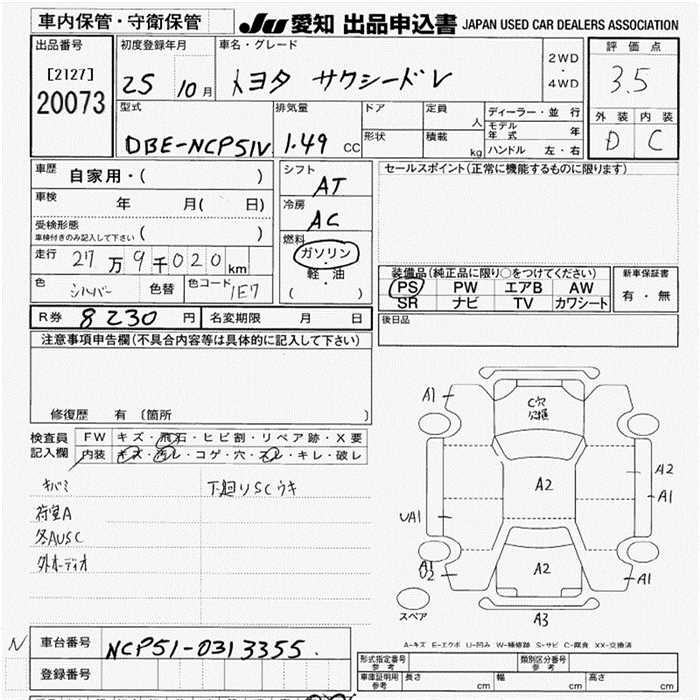 車内保管・守衛保管 JU 愛知 出品申込書 JAPAN USED CAR DEALERS ASSOCIATION
出品番号 初度登録年月 車名・グレード 評価点
[2127] 25 10月 トヨタ サクシードV 2WD・4WD 3.5
20073
型式 排気量 ドア 定員 人 ディーラー・並行 外装 内装
DBE-NCP51V 1.49 CC 形状 積載 kg モデル年式 年 D C
ハンドル 左・右
車歴 自家用・( ) シフト AT セールスポイント(正常に機能するものに限ります)
車検 年 月( 日) 冷房 AC
受検形態
車検付きのみ記入して下さい ( ) 燃料
走行 27万9千020km ガソリン・軽油
( )
装備品(純正品に限り○をつけてください) 新車保証書
色 シルバー 色替 色コード 1E7 PS PW エアB AW 有・無
SR ナビ TV カワシート
R券 8230円 名変期限 月 日 後日品
注意事項申告欄(不具合内容等は具体的に記入して下さい)
修復歴 有 〔箇所 〕
検査員記入欄 FW キズ・飛石・ヒビ割・リペア跡・X要
内装 キズ・汚レ・コゲ・穴・スレ・キレ・破レ
キバミ 下廻りSCウキ
荷室A
冬AUSC
外オーディオ
A1
C穴
A2
A2
A1
UA1
A1
U2
A2
A1
A3
スペア
A-キズ E-エクボ U-凹み W-補修跡 S-サビ C-腐食 XX-交換済
N 車台番号 NCP51-0313355.
登録番号
形式指定番号 参考 類別区分番号 参考
車庫証明用 参考 長さ cm 幅 cm 高さ cm